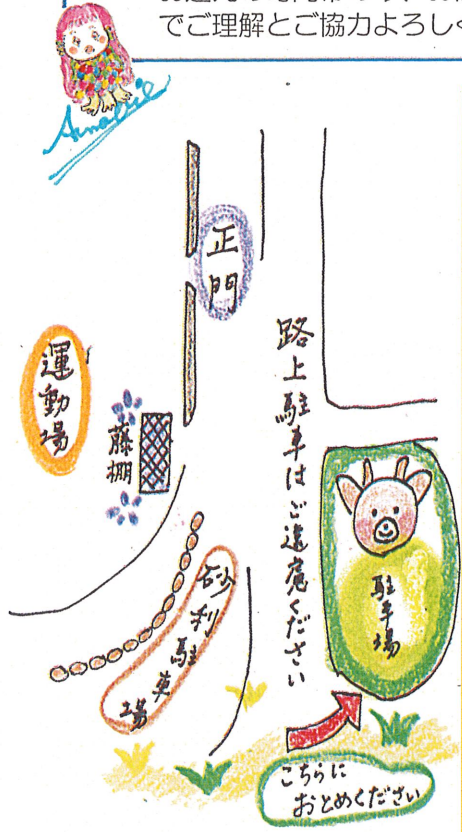 でご理解とご協力よろしく
Amabie
正門
運動場
藤棚
路上駐車はご遠慮ください
砂利駐車場
駐車場
こちらに
おとめください